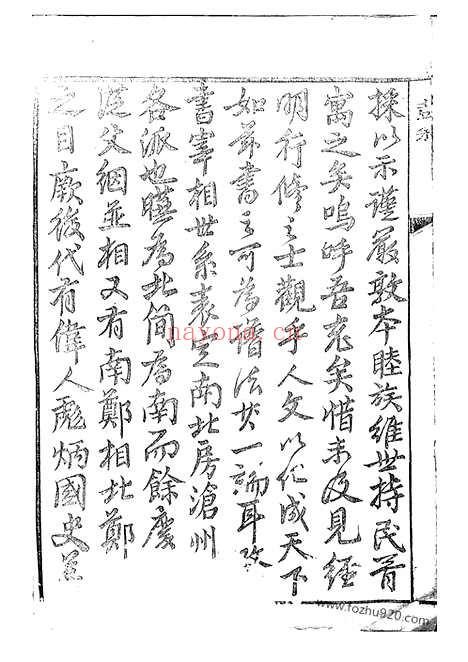 採以示謹嚴敦本睦族維世持民胥
寓之矣嗚呼吾老矣惜未及見經
明行修之士觀乎人文以化成天下
如茲書之可為楷法廿一論耳攷
書宰相世系表定南北房滄州
各派也曄為北簡為南而餘慶
從父絪並相又有南鄭相北鄭
之目厥後代有偉人彪炳國史並
nayona.cn
www.fozhu920.com